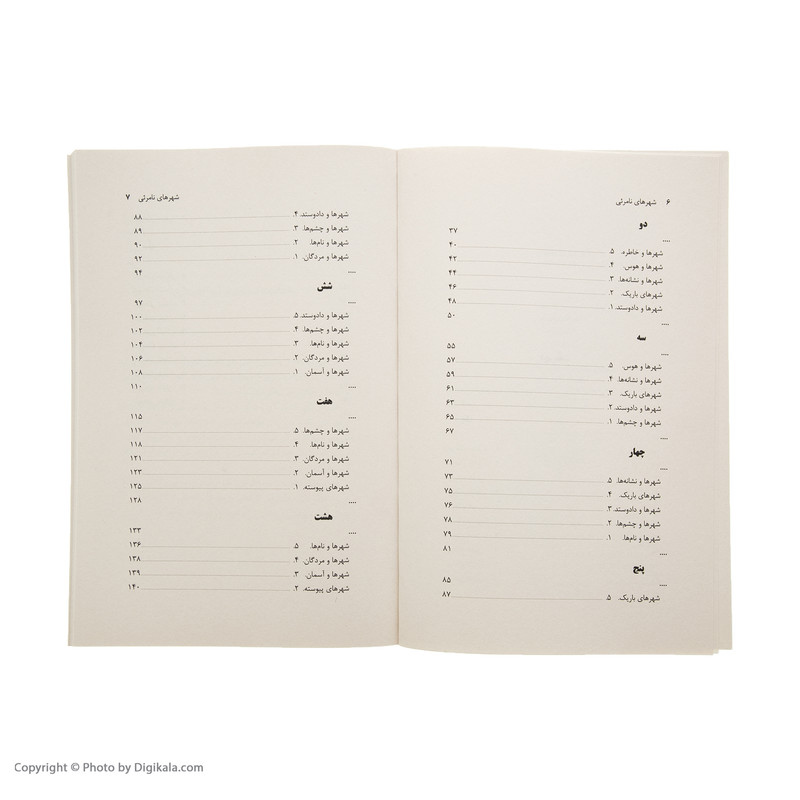 ۶ شهرهای نامرئی
دو
.... ۳۷
شهرها و خاطره. ۵. ۴۰
شهرها و هوس. ۴. ۴۲
شهرها و نشانه‌ها. ۳. ۴۴
شهرهای باریک. ۲. ۴۶
شهرها و دادوستد. ۱. ۴۸
.... ۵۰
سه
.... ۵۵
شهرها و هوس. ۵. ۵۷
شهرها و نشانه‌ها. ۴. ۵۹
شهرهای باریک. ۳. ۶۱
شهرها و دادوستد. ۲. ۶۳
شهرها و چشم‌ها. ۱. ۶۵
.... ۶۷
چهار
.... ۷۱
شهرها و نشانه‌ها. ۵. ۷۳
شهرهای باریک. ۴. ۷۵
شهرها و دادوستد. ۳. ۷۶
شهرها و چشم‌ها. ۲. ۷۸
شهرها و نام‌ها. ۱. ۷۹
.... ۸۱
پنج
.... ۸۵
شهرهای باریک. ۵. ۸۷
شهرهای نامرئی ۷
شهرها و دادوستد. ۴. ۸۸
شهرها و چشم‌ها. ۳. ۸۹
شهرها و نام‌ها. ۲. ۹۰
شهرها و مردگان. ۱. ۹۲
.... ۹۴
شش
.... ۹۷
شهرها و دادوستد. ۵. ۱۰۰
شهرها و چشم‌ها. ۴. ۱۰۲
شهرها و نام‌ها. ۳. ۱۰۴
شهرها و مردگان. ۲. ۱۰۶
شهرها و آسمان. ۱. ۱۰۸
.... ۱۱۰
هفت
.... ۱۱۵
شهرها و چشم‌ها. ۵. ۱۱۷
شهرها و نام‌ها. ۴. ۱۱۸
شهرها و مردگان. ۳. ۱۲۱
شهرها و آسمان. ۲. ۱۲۳
شهرهای پیوسته. ۱. ۱۲۵
.... ۱۲۸
هشت
.... ۱۳۳
شهرها و نام‌ها. ۵. ۱۳۶
شهرها و مردگان. ۴. ۱۳۸
شهرها و آسمان. ۳. ۱۳۹
شهرهای پیوسته. ۲. ۱۴۰
Copyright © Photo by Digikala.com